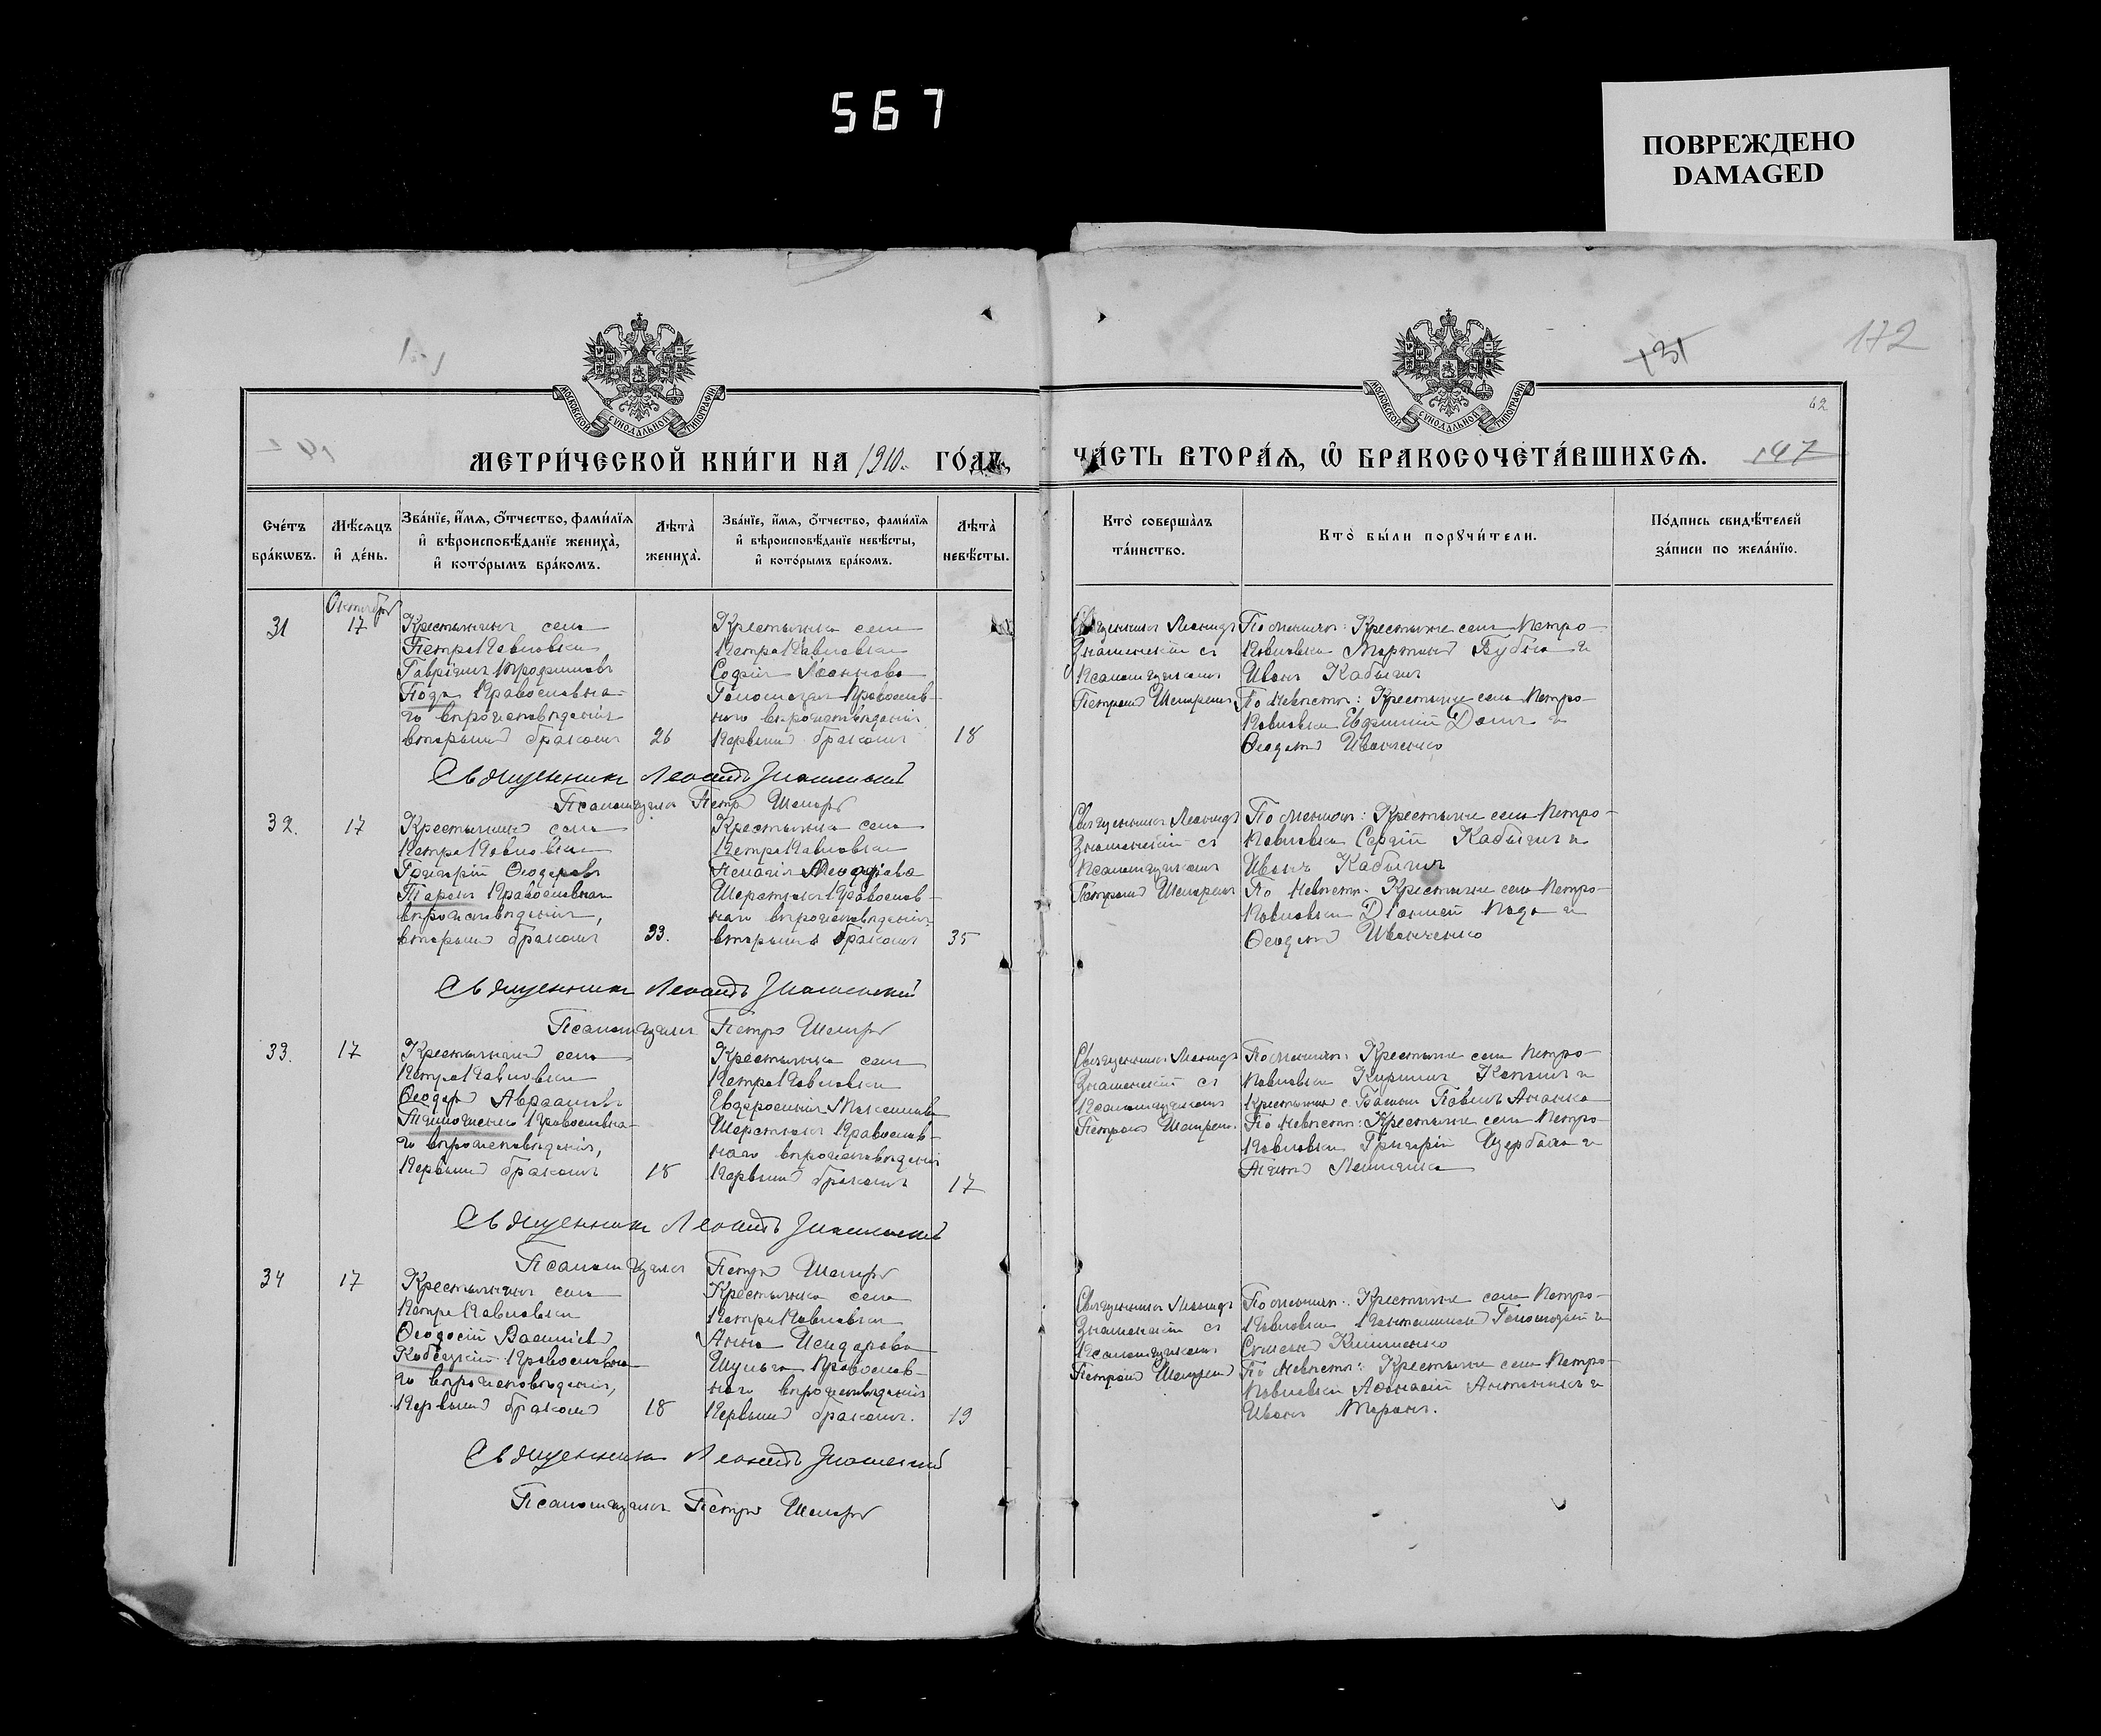 567
ПОВРЕЖДЕНО
DAMAGED
172
131
62
147
МОСКОВСКОЙ СѴНОДАЛЬНОЙ ТИПОГРАФІИ
МОСКОВСКОЙ СѴНОДАЛЬНОЙ ТИПОГРАФІИ
МЕТРИ́ЧЕСКОЙ КНИ́ГИ НА 1910. ГО́ДЪ,
ЧА́СТЬ ВТОРА́Ѧ, Ѽ БРАКОСОЧЕТА́ВШИХСѦ.
Сче́тъ бра́кѡвъ.
Мѣ́сѧцъ и҆ де́нь.
Зва́нїе, и҆́мѧ, ѻ҆́тчество, фами́лїѧ и҆ вѣроисповѣ́данїе жениха̀, и҆ кото́рымъ бра́комъ.
Лѣ́та̀ жениха̀.
Зва́нїе, и҆́мѧ, ѻ҆́тчество, фами́лїѧ и҆ вѣроисповѣ́данїе невѣ́сты, и҆ кото́рымъ бра́комъ.
Лѣ́та̀ невѣ́сты.
Кто̀ соверша̀лъ та́инство.
Кто̀ бы́ли порꙋчи́тели.
По́дпись свидѣ́телей за́писи по жела́нїю.
Октября
31
17
Крестьянинъ села
ПетроПавловки
Гавріилъ Трофимовъ
Пода Православна-
го вѣроисповѣданія
вторымъ бракомъ
26
Крестьянка села
ПетроПавловки
Софія Іоаннова
Православ-
наго вѣроисповѣданія
Первымъ бракомъ
18
Священникъ Леонидъ
Знаменскій съ
Псаломщикомъ
Петромъ
По женихѣ: Крестьяне села Петро-
Павловки
Иванъ Кабыгинъ
По невѣстѣ: Крестьяне села Петро-
Павловки
Ѳеодотъ Иванченко
Священникъ Леонидъ Знаменскій
Псаломщикъ Петръ
32.
17
Крестьянинъ села
ПетроПавловки
Григорій Ѳеодоровъ
Таранъ Православнаго
вѣроисповѣданія,
вторымъ бракомъ
33.
Крестьянка села
ПетроПавловки
Пелагія Ѳеодорова
Православ-
наго вѣроисповѣданія
вторымъ бракомъ
35
Священникъ Леонидъ
Знаменскій съ
Псаломщикомъ
Петромъ
По женихѣ: Крестьяне села Петро-
Павловки Сергій Кабыгинъ и
Иванъ Кабыгинъ
По невѣстѣ: Крестьяне села Петро-
Павловки Пода и
Ѳеодотъ Иванченко
Священникъ Леонидъ Знаменскій
Псаломщикъ Петръ
33.
17
Крестьянинъ села
ПетроПавловки
Ѳеодоръ Авраамовъ
Православна-
го вѣроисповѣданія,
Первымъ бракомъ
18
Крестьянка села
ПетроПавловки
Евфросинія Максимова
Православ-
наго вѣроисповѣданія
Первымъ бракомъ
17
Священникъ Леонидъ
Знаменскій съ
Псаломщикомъ
Петромъ
По женихѣ: Крестьяне села Петро-
Павловки Кириллъ и
Павелъ Ананко
По невѣстѣ: Крестьяне села Петро-
Павловки Григорій Щербина и
Священникъ Леонидъ Знаменскій
Псаломщикъ Петръ
34
17
Крестьянинъ села
ПетроПавловки
Ѳеодосій
Православна-
го вѣроисповѣданія,
Первымъ бракомъ
18
Крестьянка села
ПетроПавловки
Анна Исидорова
Шульга Православ-
наго вѣроисповѣданія
Первымъ бракомъ.
19
Священникъ Леонидъ
Знаменскій съ
Псаломщикомъ
Петромъ
По женихѣ: Крестьяне села Петро-
Павловки
По невѣстѣ: Крестьяне села Петро-
Павловки Аѳанасій и
Иванъ
Священникъ Леонидъ Знаменскій
Псаломщикъ Петръ